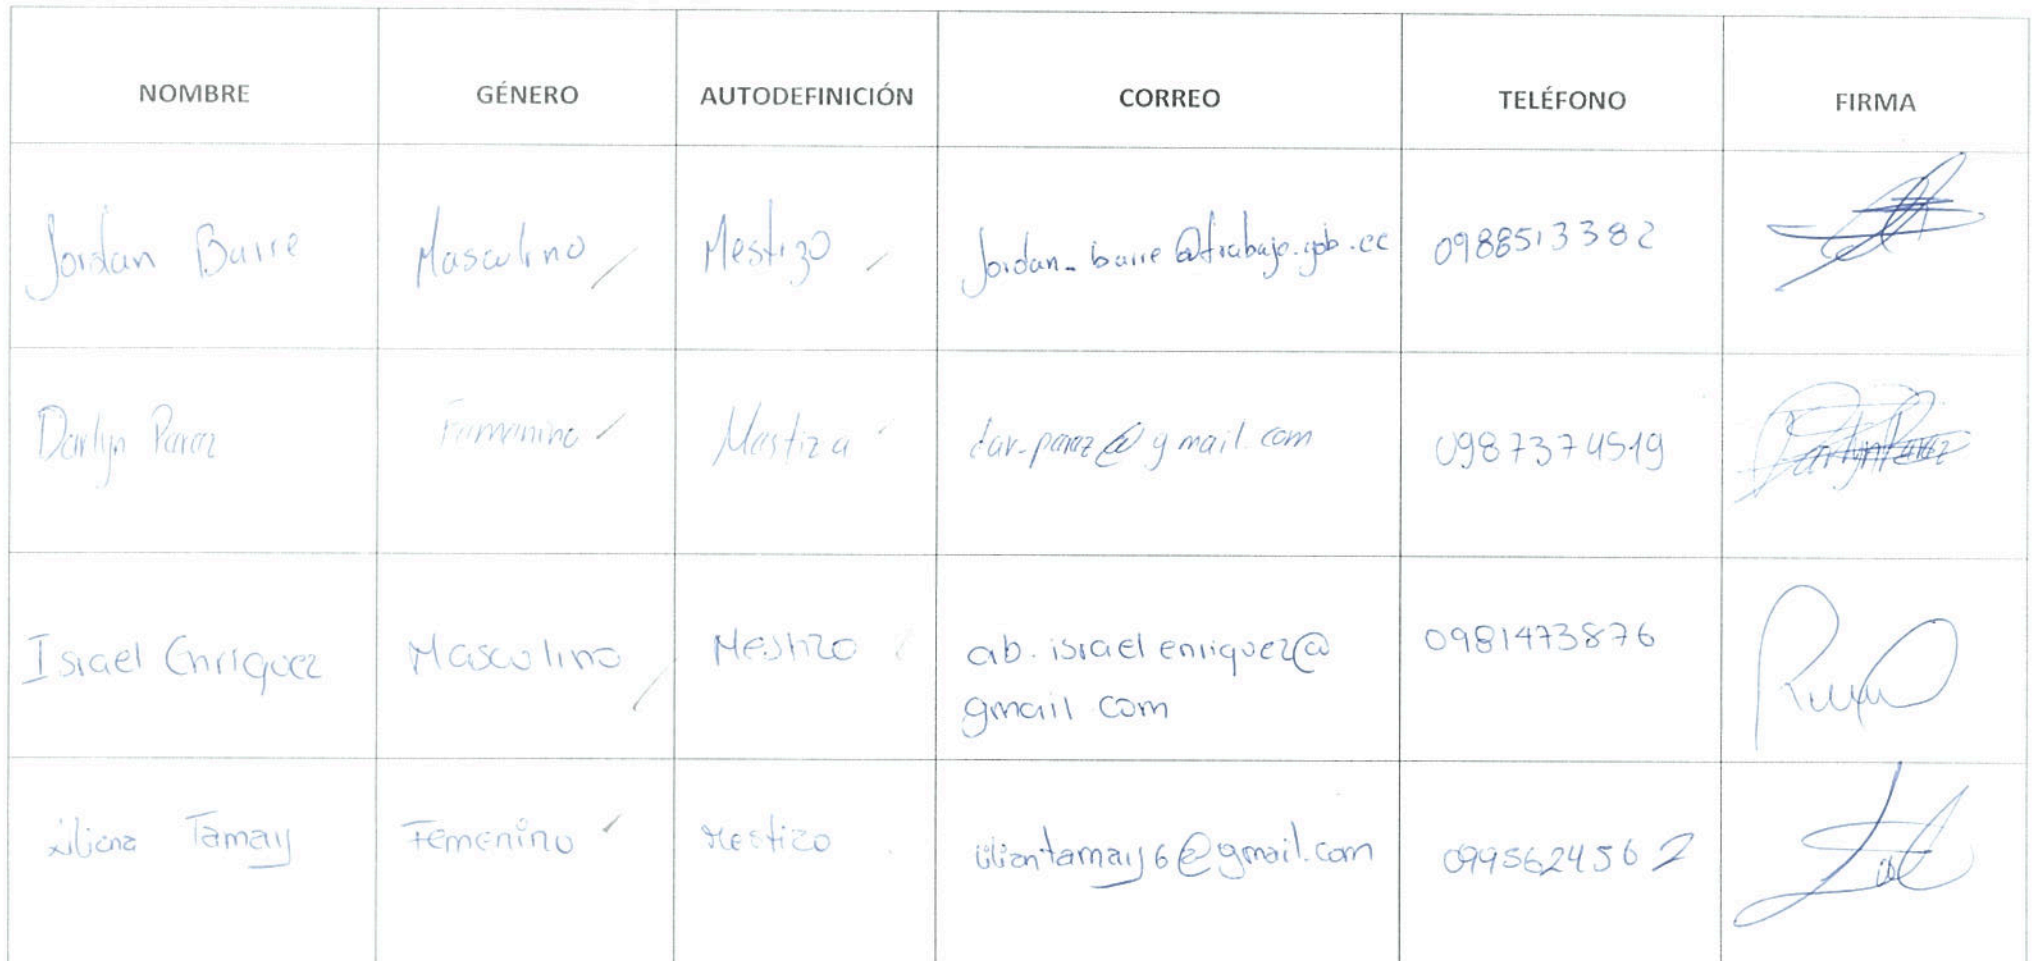 NOMBRE GÉNERO AUTODEFINICIÓN CORREO TELÉFONO FIRMA
Jordan Burre Masculino Mestizo Jordan_burre@trabajo.gob.ec 0988513382
Darlyn Paraz Femenino Mestiza dar-paraz@gmail.com 0987374519
Israel Enriquez Masculino Mestizo ab.israelenriquez@
gmail.com 0981473876
Liliana Tamay Femenino Mestizo liliantamay6@gmail.com 0995624562